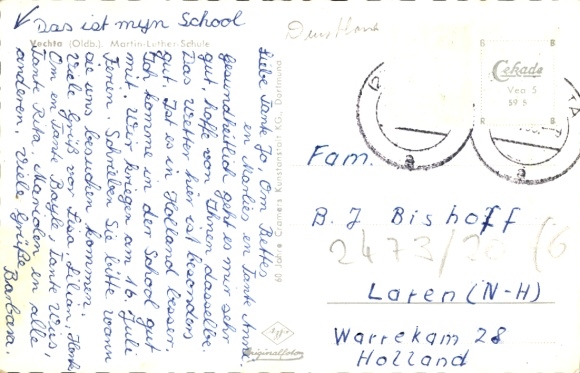 Das ist mijn School
Vechta (Oldb.) Martin-Luther-Schule
Liebe Tante Jo, Om Bettes
en Marlies en Tante Ann.
Gesundheitlich geht es mir sehr
gut, hoffe von Ihnen dasselbe.
Das Wetter hier ist besonders
gut. Ist es in Holland besser.
Ich komme in der School gut
mit. Wir kriegen am 16. Juli
Ferien. Schreiben Sie bitte wann
Sie uns besuchen kommen.
Viele Grüße von Lisa, Lilian,
Om en Tante Bayle, Tante Wus,
Tante Rita, Mariolen en alle
anderen. Viele Grüße
Barbara.
60 Jahre Cramers Kunstanstalt KG., Dortmund
Agfa
Originalfoto
B B
Cekade
Vea 5
59 5
B B
a a
Fam.
B. J Bishoff
2473/20
Laren (N-H)
Warrekam 28
Holland